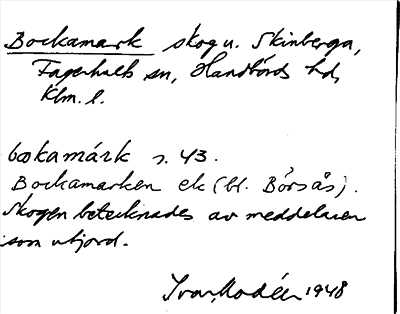 Bockamark skog u. Skinberga,
Fagerhults sn, Handbörds hd,
Klm. l.
bokamárk s. 43.
Bockamarken ek (bl. Börsås).
Skogen betecknades av meddelaren
som utjord.
Ivar Modéer 1948